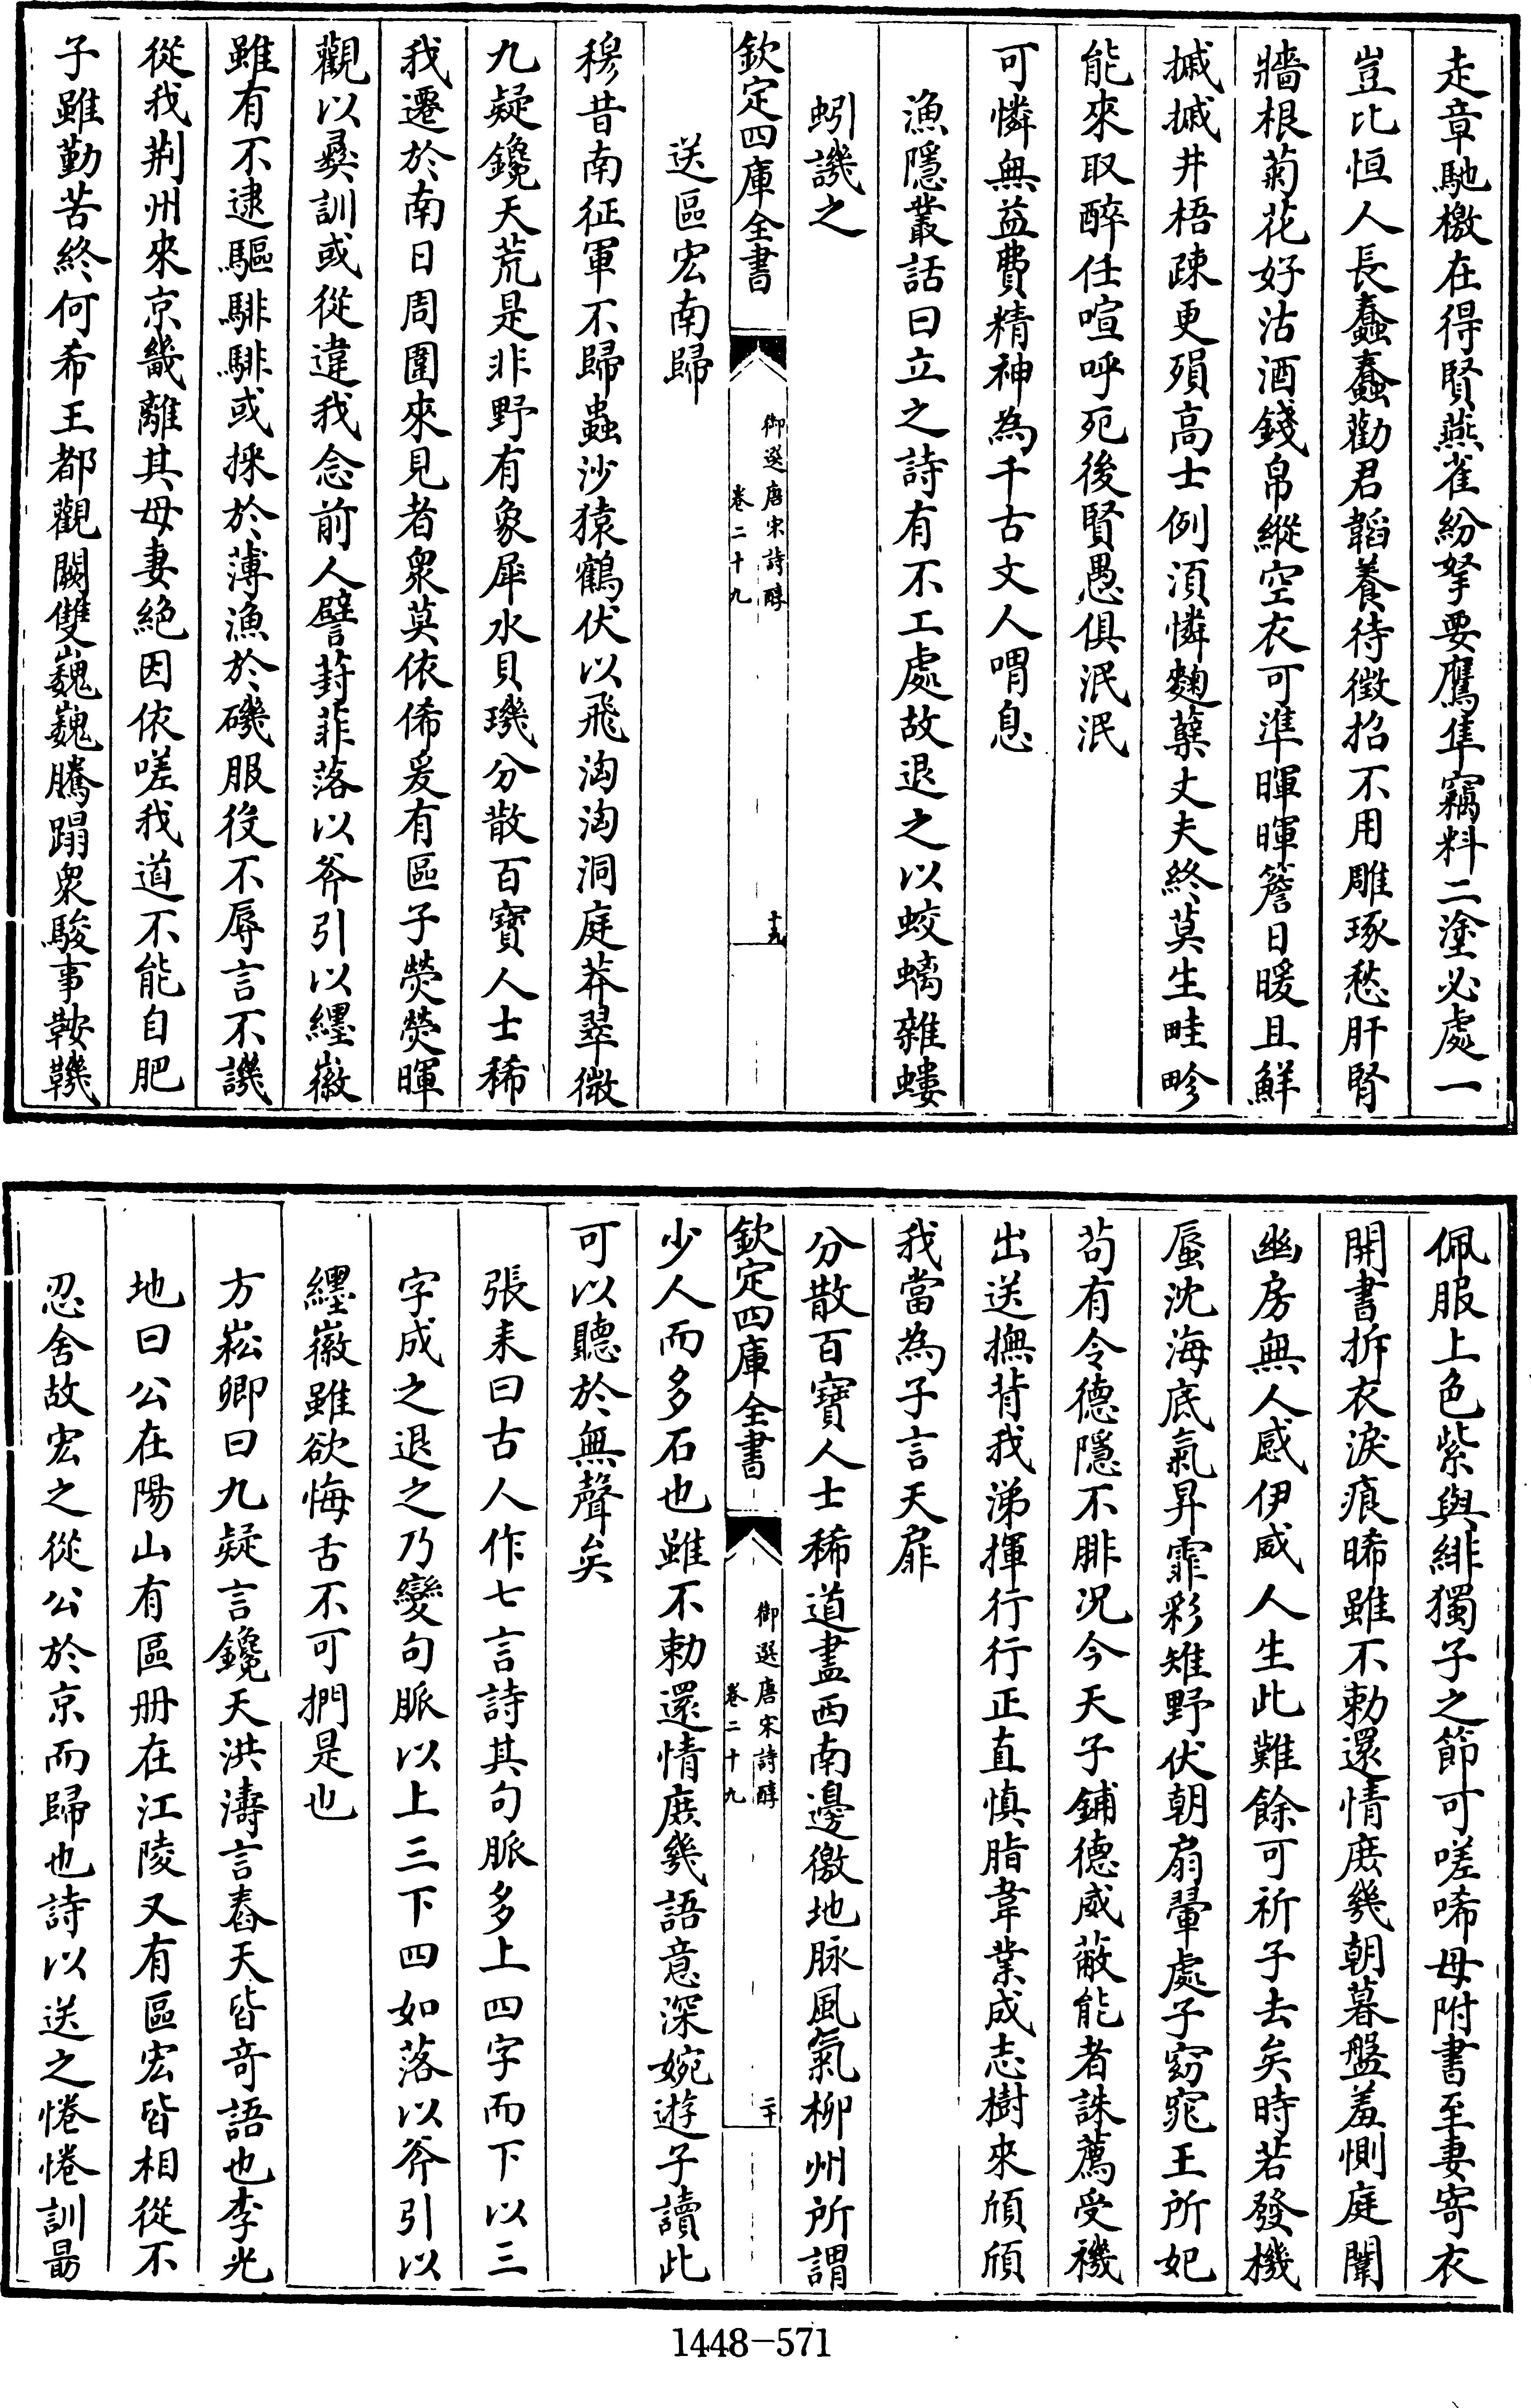 走章馳檄在得賢燕雀紛拏要鷹隼竊料二塗必處一
豈比恒人長蠢蠢勸君韜養待徵招不用雕琢愁肝腎
牆根菊花好沽酒錢帛縱空衣可準暉暉簷日暖且鮮
摵摵井梧疎更殞高士例須憐麴糵丈夫終莫生畦畛
能來取醉任喧呼死後賢愚俱泯泯
可憐無益費精神為千古文人喟息
漁隱叢話曰立之詩有不工處故退之以蛟螭雜螻
蚓譏之
欽定四庫全書
御選唐宋詩醇
卷二十九
十九
送區宏南歸
穆昔南征軍不歸蟲沙猿鶴伏以飛洶洶洞庭莽翠微
九疑鑱天荒是非野有象犀水貝璣分散百寶人士稀
我遷於南日周圍來見者衆莫依俙爰有區子熒熒暉
觀以彝訓或從違我念前人譬葑菲落以斧引以纆徽
雖有不逮驅騑騑或採於薄漁於磯服役不辱言不譏
從我荆州來京畿離其母妻絶因依嗟我道不能自肥
子雖勤苦終何希王都觀闕雙巍巍騰蹋衆駿事鞍鞿
佩服上色紫與緋獨子之節可嗟唏母附書至妻寄衣
開書拆衣淚痕晞雖不勅還情庶幾朝暮盤羞惻庭闈
幽房無人感伊威人生此難餘可祈子去矣時若發機
蜃沈海底氣昇霏彩雉野伏朝扇翬處子窈窕王所妃
茍有令德隱不腓况今天子鋪德威蔽能者誅薦受禨
出送撫背我涕揮行行正直慎脂韋業成志樹來頎頎
我當為子言天扉
分散百寶人士稀道盡西南邊徼地脉風氣柳州所謂
欽定四庫全書
御選唐宋詩醇
卷二十九
二十
少人而多石也雖不勅還情庶幾語意深婉遊子讀此
可以聽於無聲矣
張耒曰古人作七言詩其句脈多上四字而下以三
字成之退之乃變句脈以上三下四如落以斧引以
纆徽雖欲悔舌不可捫是也
方崧卿曰九疑言鑱天洪濤言舂天皆奇語也李光
地曰公在陽山有區册在江陵又有區宏皆相從不
忍舍故宏之從公於京而歸也詩以送之惓惓訓勗
1448-571